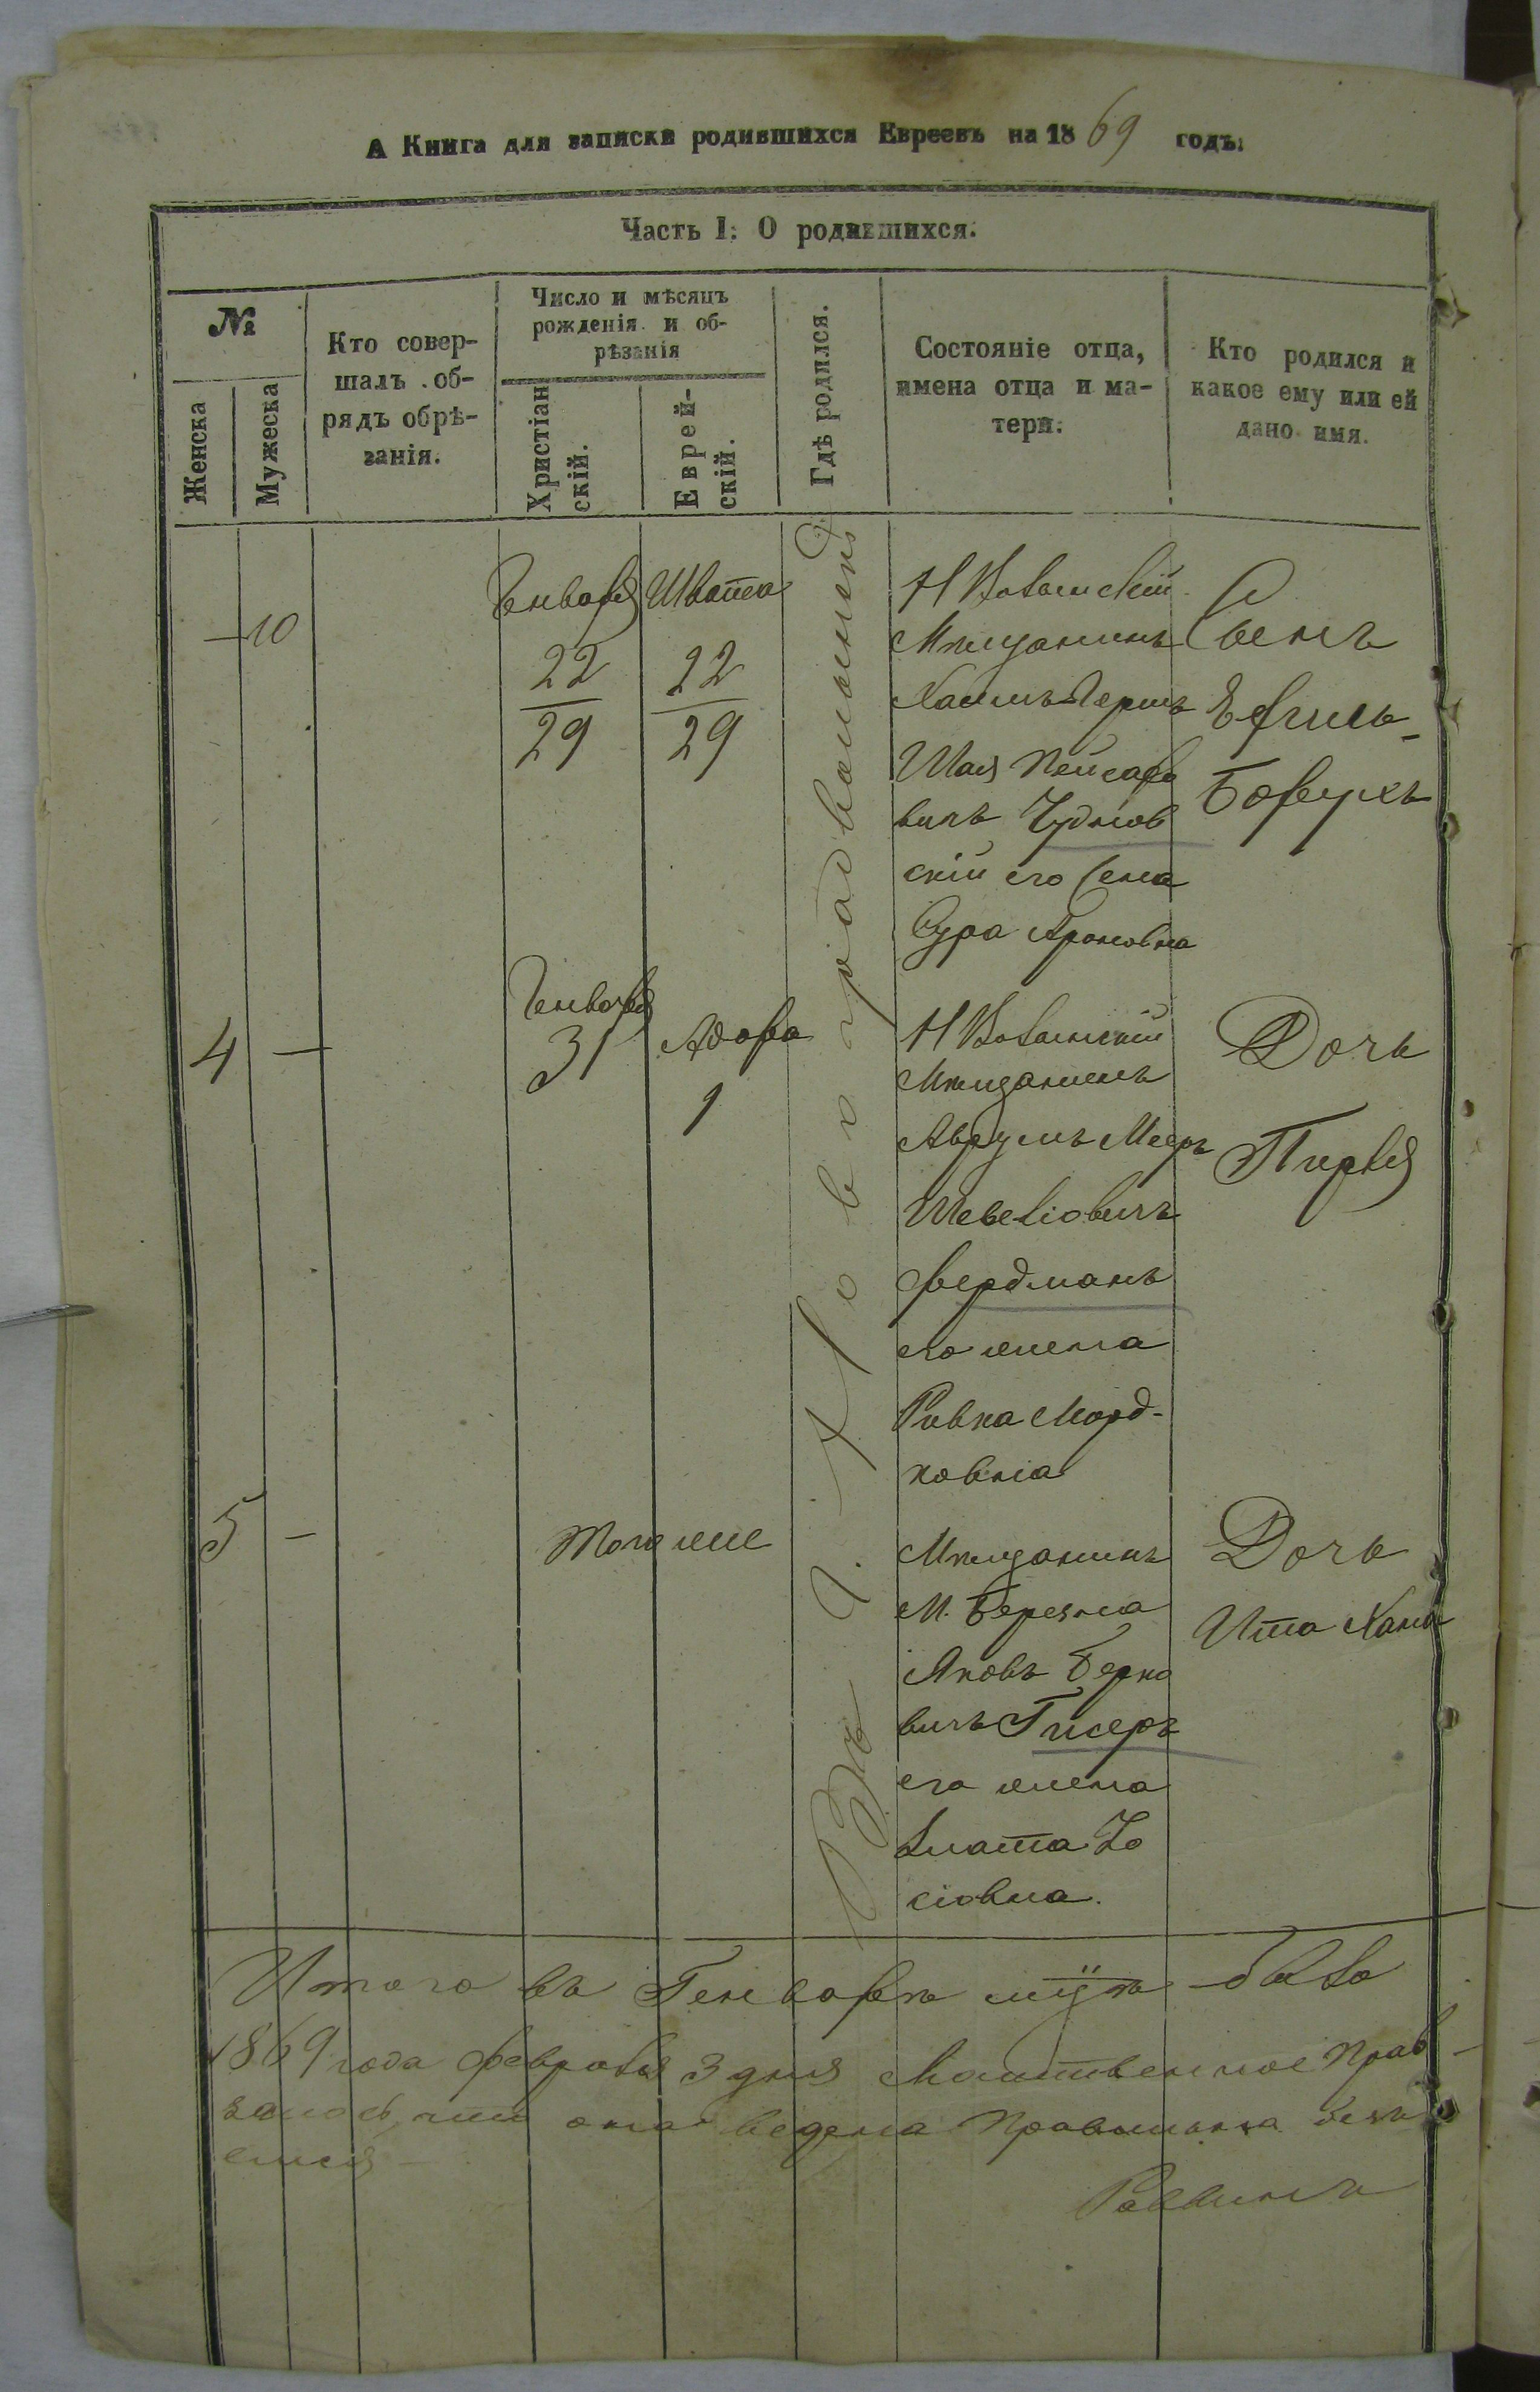 А Книга для записки родившихся Евреевъ на 1869 годъ.
Часть I: О родившихся.
№
Женска
Мужеска
Кто совер-
шалъ об-
рядъ обрѣ-
занія.
Число и мѣсяцъ
рожденія и об-
рѣзанія
Христіан
скій.
Еврей-
скій.
Гдѣ родился.
Состояніе отца,
имена отца и ма-
тери.
Кто родился и
какое ему или ей
дано имя.
Въ г.
— 10
Генваря
22
29
Швата
22
29
Мѣщанинъ
Хаимъ Гершъ
Шая Пейсахо
вичъ Чуднов
скій его жена
Сура Ароновна
Сынъ
Борухъ
4 —
Генваря
31
Адара
1
Мѣщанинъ
Аврумъ Мееръ
Шевеліовичъ
Фердманъ
его жена
Ривка Морд-
ковна
Дочь
Перля
5 —
Того же
Мѣщанинъ
М. Березна
Яковъ Берко
вичъ Гисеръ
его жена
Злата Іо
сіовна.
Дочь
Ита Хана
Итого въ Генварѣ было
1869 года февраля 3 дня Молитвенное Прав
она ведена Правильно безъ
Раввинъ